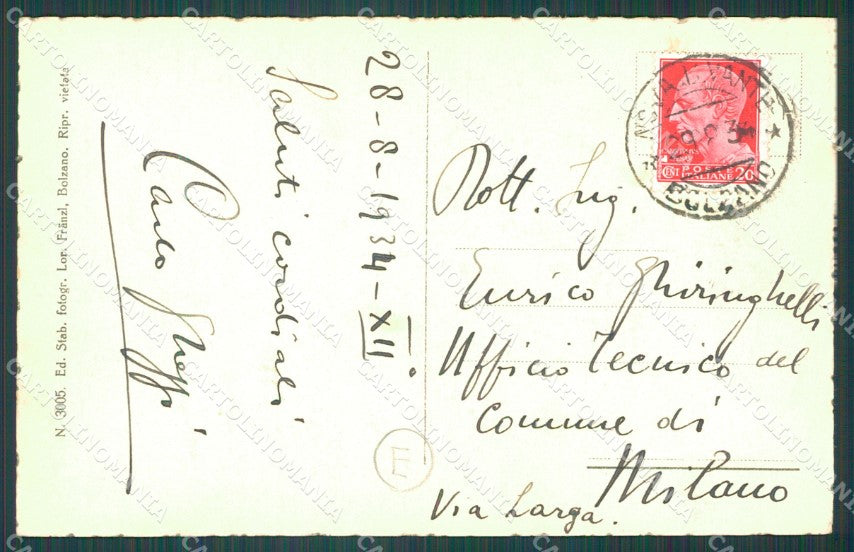 28-8-1934-XII°
Saluti cordiali
Carlo
N. 3005. Ed. Stab. fotogr. Lor. Fränzl, Bolzano. Ripr. vietata
Dott. Ing.
Enrico Ghiringhelli
Ufficio Tecnico del
Comune di
Milano
Via Larga.
NOVA LEVANTE
BOLZANO
POSTE
ITALIANE
CENT 20
E
CARTOLINOMANIA